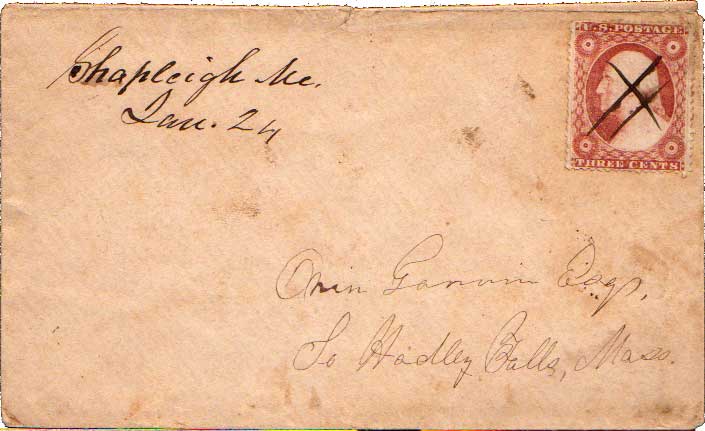 Shapleigh Me.
Jan. 24
U.S. POSTAGE
THREE CENTS
Orin Garvin Esqr.
So Hadley Falls, Mass.